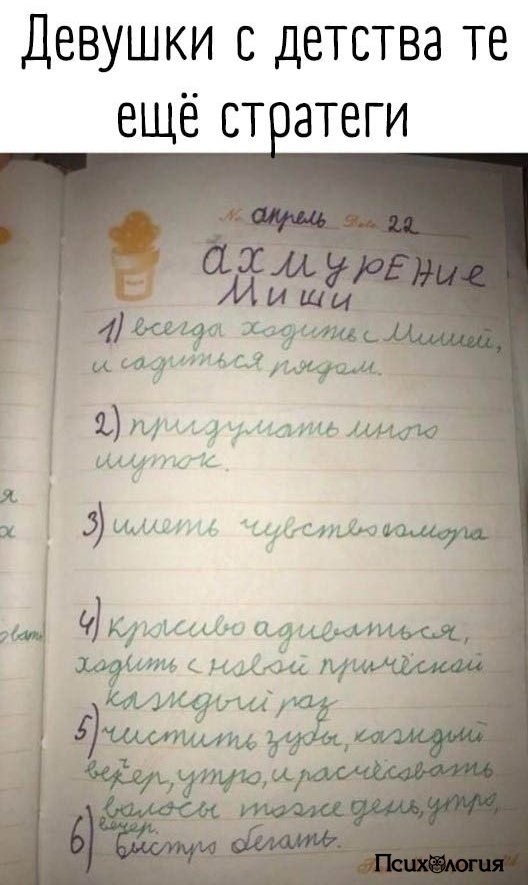 Девушки с детства те
ещё стратеги
№ апрель Date 22
ахмурЕние
Миши
1) всегда ходить с Мишей,
и садиться рядом.
2) придумать много
шуток.
я
х
3) иметь чувство юмора
овать
4) красиво адиваться,
ходить с новой причёской
каждый раз
5) чистить зубы, каждый
вечер, утро, и расчёсовать
волосы тоже день, утро,
вечер.
6) быстро бегать.
ПсихОлогия